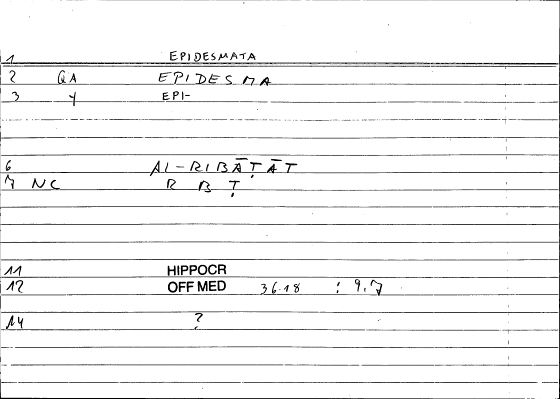 1 EPIDESMATA
2 QA EPIDESMA
3 y EPI-
6 AL-RIBĀṬĀT
7 NC R B Ṭ
11 HIPPOCR
12 OFF MED 36.18 : 9.7
14 ?